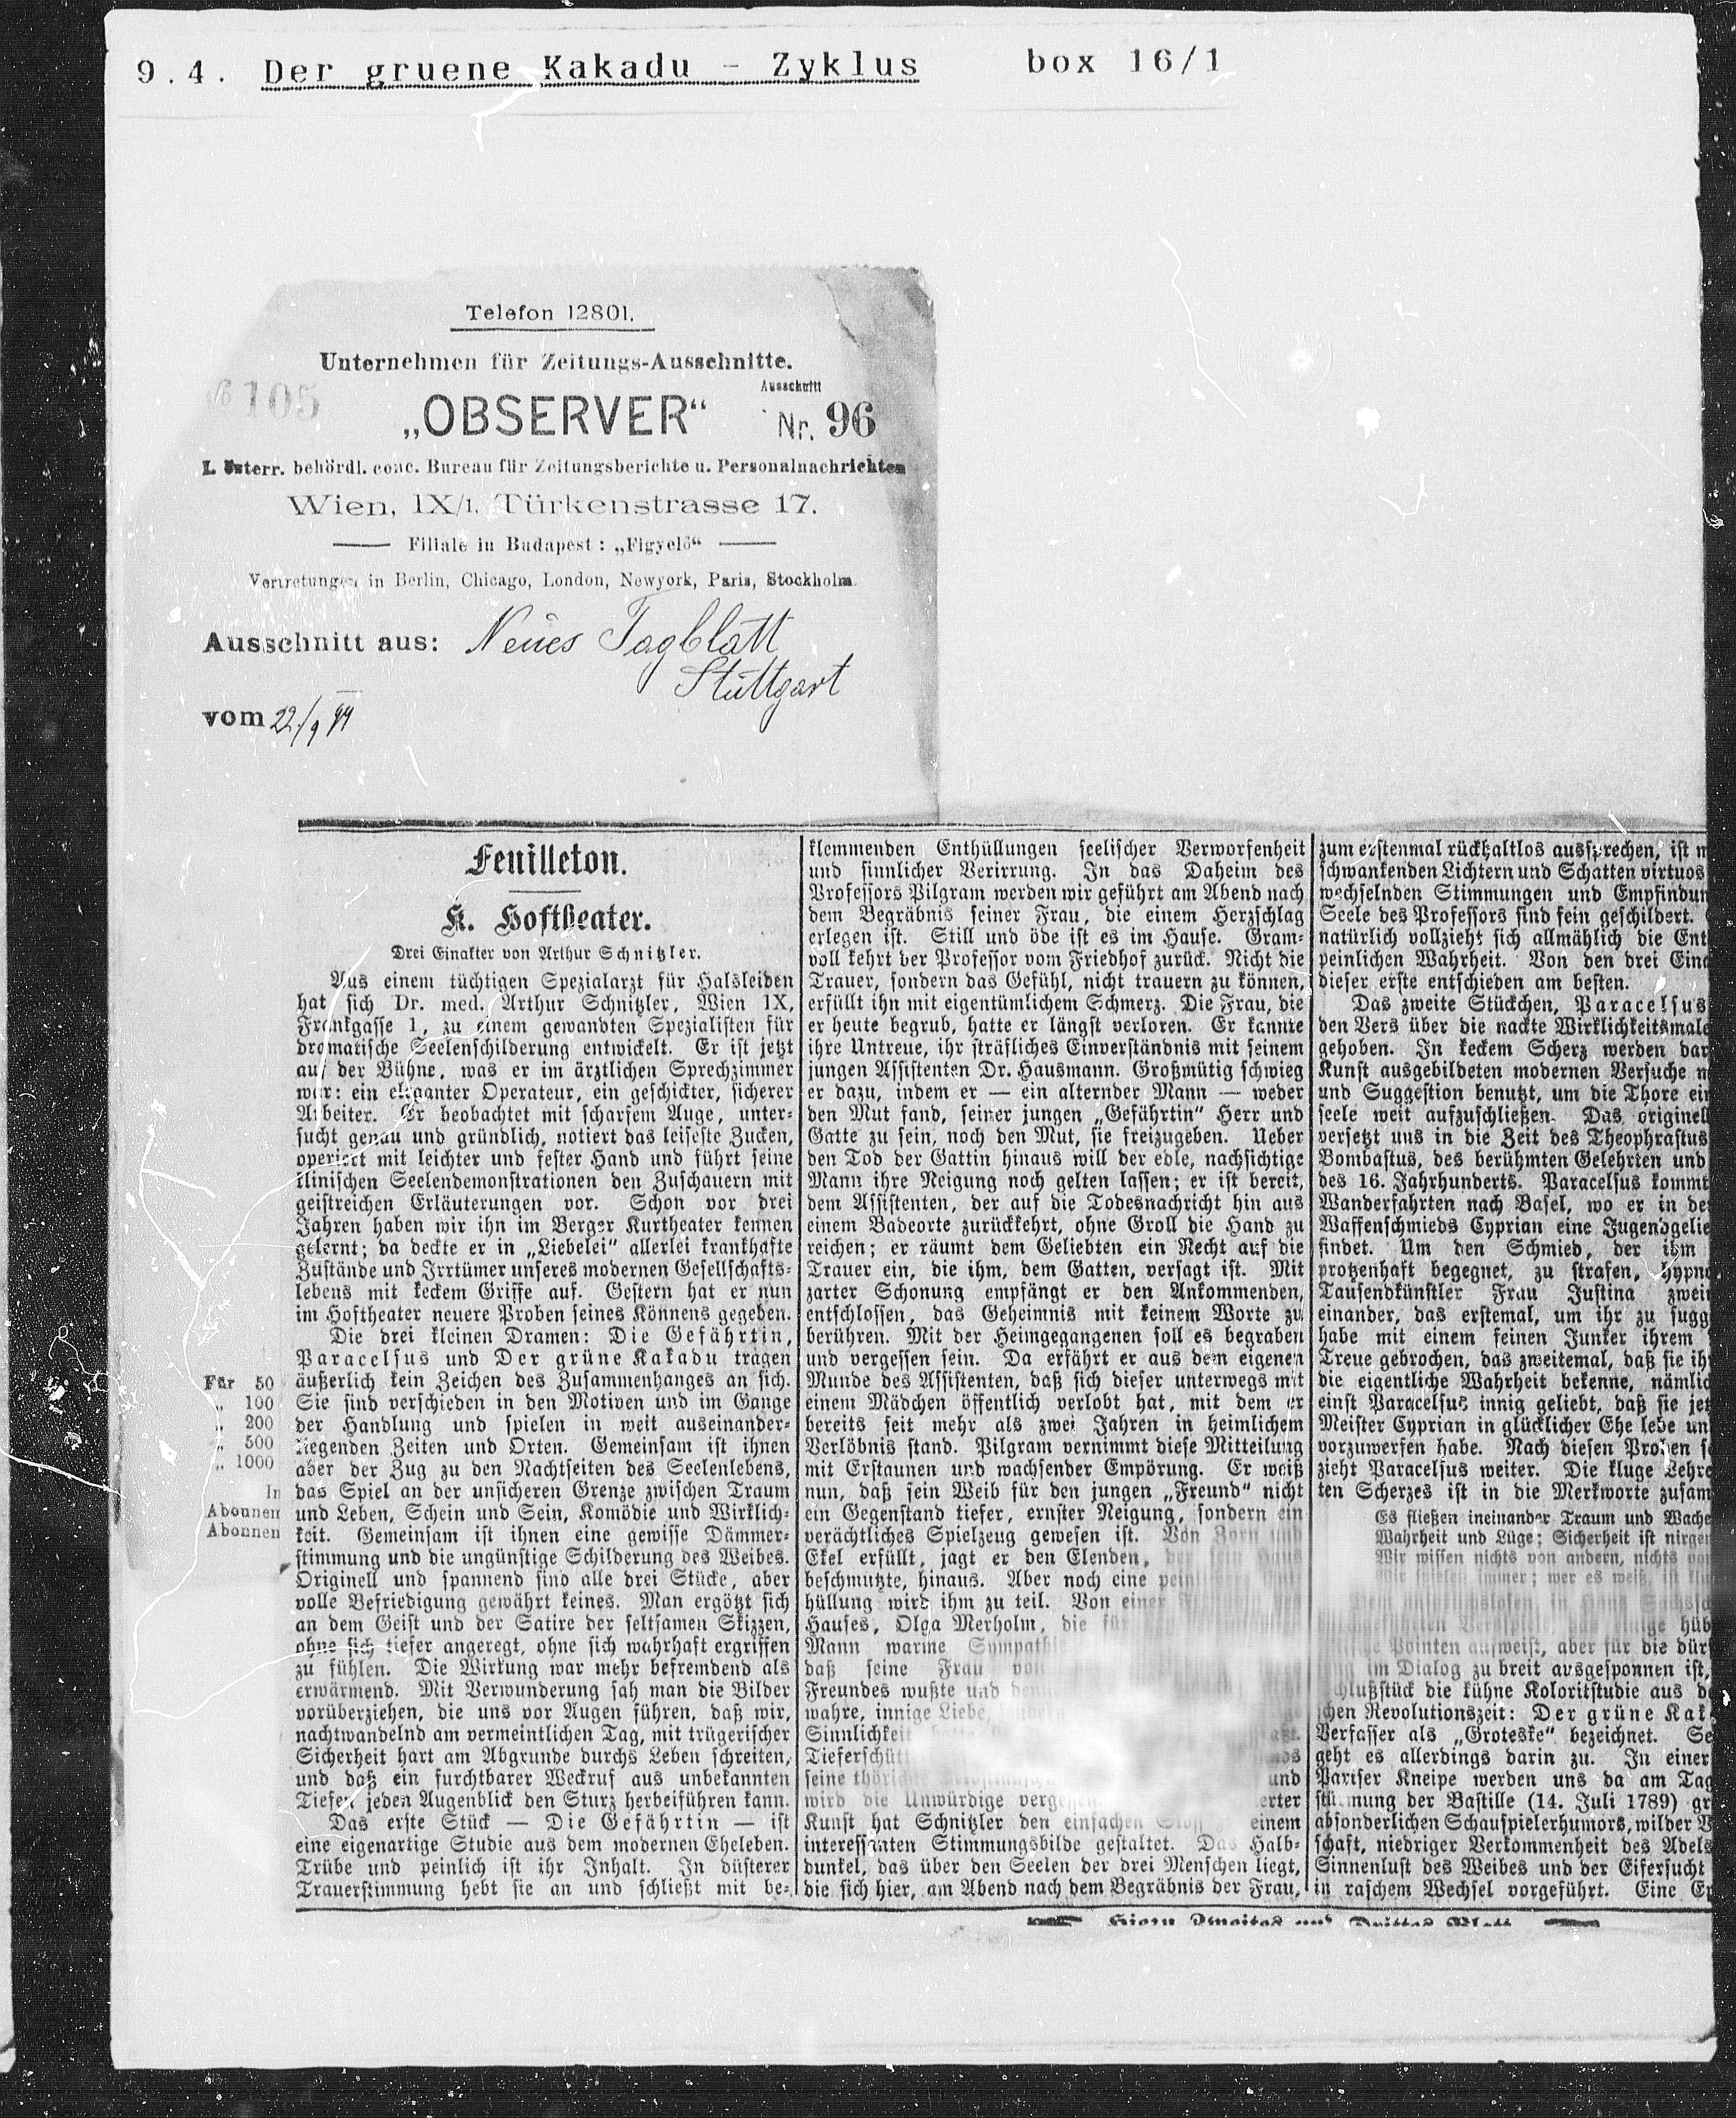 9.4. Der gruene Kakadu - Zyklus box 16/1
Telefon 12801.
Unternehmen für Zeitungs-Ausschnitte.
105
„OBSERVER“
Ausschnitt
Nr. 96
I. österr. behördl. conc. Bureau für Zeitungsberichte u. Personalnachrichten
Wien, IX/1, Türkenstrasse 17.
Filiale in Budapest: „Figyelő“
Vertretungen in Berlin, Chicago, London, Newyork, Paris, Stockholm.
Ausschnitt aus: Neues Tagblatt
Stuttgart
vom 22/9
Für 50
„ 100
„ 200
„ 500
„ 1000
In
Abonnen
Abonnen
Feuilleton.
K. Hoftheater.
Drei Einakter von Arthur Schnitzler.
Aus einem tüchtigen Spezialarzt für Halsleiden
hat sich Dr. med. Arthur Schnitzler, Wien IX,
Frankgasse 1, zu einem gewandten Spezialisten für
dramatische Seelenschilderung entwickelt. Er ist jetzt
auf der Bühne, was er im ärztlichen Sprechzimmer
war: ein eleganter Operateur, ein geschickter, sicherer
Arbeiter. Er beobachtet mit scharfem Auge, unter-
sucht genau und gründlich, notiert das leiseste Zucken,
operiert mit leichter und fester Hand und führt seine
klinischen Seelendemonstrationen den Zuschauern mit
geistreichen Erläuterungen vor. Schon vor drei
Jahren haben wir ihn im Berger Kurtheater kennen
gelernt; da deckte er in „Liebelei“ allerlei krankhafte
Zustände und Irrtümer unseres modernen Gesellschafts-
lebens mit keckem Griffe auf. Gestern hat er nun
im Hoftheater neuere Proben seines Könnens gegeben.
Die drei kleinen Dramen: Die Gefährtin,
Paracelsus und Der grüne Kakadu tragen
äußerlich kein Zeichen des Zusammenhanges an sich.
Sie sind verschieden in den Motiven und im Gange
der Handlung und spielen in weit auseinander-
liegenden Zeiten und Orten. Gemeinsam ist ihnen
aber der Zug zu den Nachtseiten des Seelenlebens,
das Spiel an der unsicheren Grenze zwischen Traum
und Leben, Schein und Sein, Komödie und Wirklich-
keit. Gemeinsam ist ihnen eine gewisse Dämmer-
stimmung und die ungünstige Schilderung des Weibes.
Originell und spannend sind alle drei Stücke, aber
volle Befriedigung gewährt keines. Man ergötzt sich
an dem Geist und der Satire der seltsamen Skizzen,
ohne sich tiefer angeregt, ohne sich wahrhaft ergriffen
zu fühlen. Die Wirkung war mehr befremdend als
erwärmend. Mit Verwunderung sah man die Bilder
vorüberziehen, die uns vor Augen führen, daß wir,
nachtwandelnd am vermeintlichen Tag, mit trügerischer
Sicherheit hart am Abgrunde durchs Leben schreiten,
und daß ein furchtbarer Weckruf aus unbekannten
Tiefen jeden Augenblick den Sturz herbeiführen kann.
Das erste Stück — Die Gefährtin — ist
eine eigenartige Studie aus dem modernen Eheleben.
Trübe und peinlich ist ihr Inhalt. In düsterer
Trauerstimmung hebt sie an und schließt mit be-
klemmenden Enthüllungen seelischer Verworfenheit
und sinnlicher Verirrung. In das Daheim des
Professors Pilgram werden wir geführt am Abend nach
dem Begräbnis seiner Frau, die einem Herzschlag
erlegen ist. Still und öde ist es im Hause. Gram-
voll kehrt der Professor vom Friedhof zurück. Nicht die
Trauer, sondern das Gefühl, nicht trauern zu können,
erfüllt ihn mit eigentümlichem Schmerz. Die Frau, die
er heute begrub, hatte er längst verloren. Er kannte
ihre Untreue, ihr sträfliches Einverständnis mit seinem
jungen Assistenten Dr. Hausmann. Großmütig schwieg
er dazu, indem er — ein alternder Mann — weder
den Mut fand, seiner jungen „Gefährtin“ Herr und
Gatte zu sein, noch den Mut, sie freizugeben. Ueber
den Tod der Gattin hinaus will der edle, nachsichtige
Mann ihre Neigung noch gelten lassen; er ist bereit,
dem Assistenten, der auf die Todesnachricht hin aus
einem Badeorte zurückkehrt, ohne Groll die Hand zu
reichen; er räumt dem Geliebten ein Recht auf die
Trauer ein, die ihm, dem Gatten, versagt ist. Mit
zarter Schonung empfängt er den Ankommenden,
entschlossen, das Geheimnis mit keinem Worte zu
berühren. Mit der Heimgegangenen soll es begraben
und vergessen sein. Da erfährt er aus dem eigenen
Munde des Assistenten, daß sich dieser unterwegs mit
einem Mädchen öffentlich verlobt hat, mit dem er
bereits seit mehr als zwei Jahren in heimlichem
Verlöbnis stand. Pilgram vernimmt diese Mitteilung
mit Erstaunen und wachsender Empörung. Er weiß
nun, daß sein Weib für den jungen „Freund“ nicht
ein Gegenstand tiefer, ernster Neigung, sondern ein
verächtliches Spielzeug gewesen ist. Von Zorn und
Ekel erfüllt, jagt er den Elenden, der sein Haus
beschmutzte, hinaus. Aber noch eine
hüllung wird ihm zu teil. Von einer
Hauses, Olga Merholm, die für
Mann warme
daß seine Frau von
Freundes wußte und
wahre, innige Liebe,
Sinnlichkeit
seine
und
wird die Unwürdige
Kunst hat Schnitzler den einfachen Stoff einem
interessanten Stimmungsbilde gestaltet. Das Halb-
dunkel, das über den Seelen der drei Menschen liegt,
die sich hier, am Abend nach dem Begräbnis der Frau,
zum erstenmal rückhaltlos aussprechen, ist
schwankenden Lichtern und Schatten virtuos
wechselnden Stimmungen und Empfindun
Seele des Professors sind fein geschildert.
natürlich vollzieht sich allmählich die Ent
peinlichen Wahrheit. Von den drei Eina
dieser erste entschieden am besten.
Das zweite Stückchen, Paracelsus
den Vers über die nackte Wirklichkeitsmale
gehoben. In keckem Scherz werden dar
Kunst ausgebildeten modernen Versuche
und Suggestion benutzt, um die Thore ein
seele weit aufzuschließen. Das originell
versetzt uns in die Zeit des Theophrastus
Bombastus, des berühmten Gelehrten und
des 16. Jahrhunderts. Paracelsus kommt
Wanderfahrten nach Basel, wo er in de
Waffenschmieds Cyprian eine Jugendgelie
findet. Um den Schmied, der ihm
protzenhaft begegnet, zu strafen, hypno
Tausendkünstler Frau Justina zwei
einander, das erstemal, um ihr zu sugg
habe mit einem feinen Junker ihrem
Treue gebrochen, das zweitemal, daß sie ih
die eigentliche Wahrheit bekenne, nämlic
einst Paracelsus innig geliebt, daß sie jet
Meister Cyprian in glücklicher Ehe lebe un
vorzuwerfen habe. Nach diesen Proben
zieht Paracelsus weiter. Die kluge Lehre
ten Scherzes ist in die Merkworte zusam
Es fließen ineinander Traum und Wache
Wahrheit und Lüge; Sicherheit ist nirgen
Wir wissen nichts von andern, nichts von
Wir spielen immer; wer es weiß, ist klu
Dem anspruchslosen, in Hans Sachssch
einige hüb
Pointen aufweist, aber für die dür
im Dialog zu breit ausgesponnen ist,
chlußstück die kühne Koloritstudie aus de
schen Revolutionszeit: Der grüne Kak
Verfasser als „Groteske“ bezeichnet. Se
geht es allerdings darin zu. In einer
Pariser Kneipe werden uns da am Tag
stürmung der Bastille (14. Juli 1789) gr
absonderlichen Schauspielerhumors, wilder
schaft, niedriger Verkommenheit des Adels
Sinnenlust des Weibes und der Eifersucht
in raschem Wechsel vorgeführt. Eine
Hiezu Zweites und Drittes Blatt